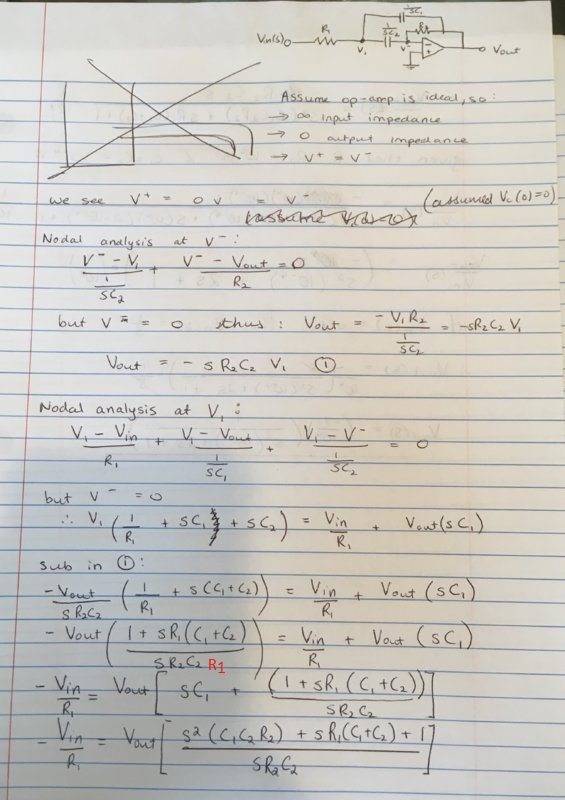 1/SC₁
Vin(s) R₁ 1/SC₂ R₂ V₁ V⁻ Vout
Assume op-amp is ideal, so:
→ ∞ input impedance
→ 0 output impedance
→ V⁺ = V⁻
we see V⁺ = 0 v = V⁻ (assumed Vc(0)=0)
Nodal analysis at V⁻:
(V⁻ - V₁)/(1/SC₂) + (V⁻ - Vout)/R₂ = 0
but V⁻ = 0 thus: Vout = -V₁R₂/(1/SC₂) = -sR₂C₂ V₁
Vout = - s R₂C₂ V₁ ①
Nodal analysis at V₁:
(V₁ - Vin)/R₁ + (V₁ - Vout)/(1/SC₁) + (V₁ - V⁻)/(1/SC₂) = 0
but V⁻ = 0
∴ V₁ (1/R₁ + SC₁ + SC₂) = Vin/R₁ + Vout(SC₁)
sub in ①:
-Vout/(SR₂C₂) (1/R₁ + s(C₁+C₂)) = Vin/R₁ + Vout (SC₁)
- Vout ((1 + sR₁(C₁+C₂))/(SR₂C₂ R1)) = Vin/R₁ + Vout (SC₁)
- Vin/R₁ = Vout [SC₁ + (1 + sR₁(C₁+C₂))/(SR₂C₂)]
- Vin/R₁ = Vout [(s²(C₁C₂R₂) + sR₁(C₁+C₂) + 1)/(SR₂C₂)]